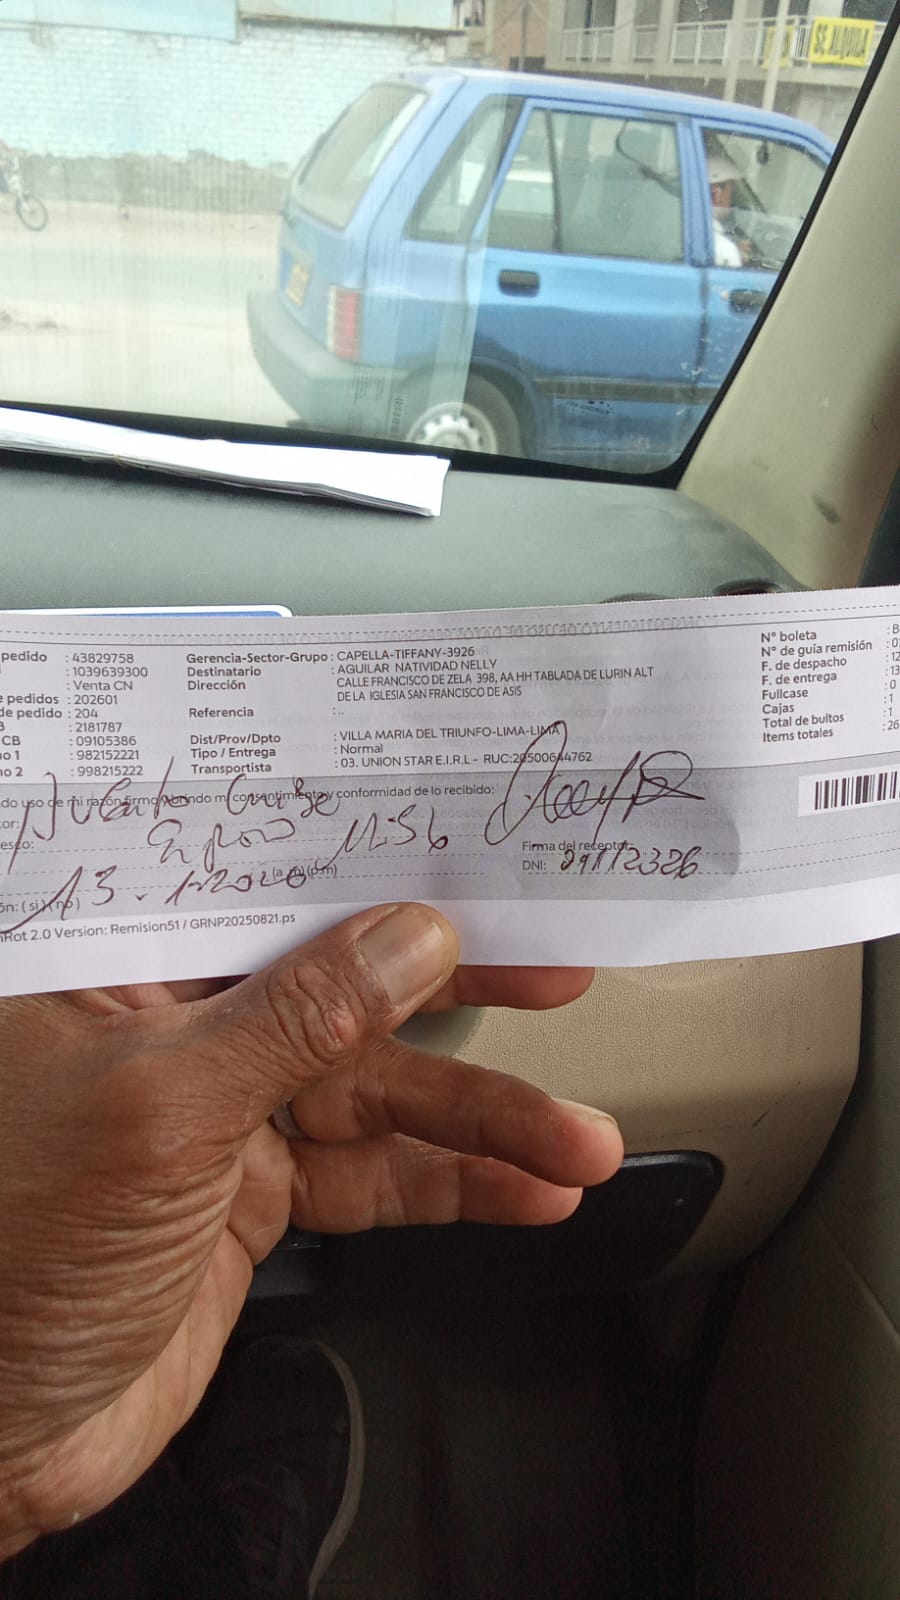 SE ALQUILA
pedido : 43829758
: 1039639300
: Venta CN
e pedidos : 202601
de pedido : 204
: 2181787
CB : 09105386
no 1 : 982152221
no 2 : 998215222
Gerencia-Sector-Grupo : CAPELLA-TIFFANY-3926
Destinatario : AGUILAR NATIVIDAD NELLY
Dirección CALLE FRANCISCO DE ZELA 398, AA HH TABLADA DE LURIN ALT
DE LA IGLESIA SAN FRANCISCO DE ASIS
Referencia : ..
Dist/Prov/Dpto : VILLA MARIA DEL TRIUNFO-LIMA-LIMA
Tipo / Entrega : Normal
Transportista : 03. UNION STAR E.I.R.L - RUC:20500644762
N° boleta : B
N° de guía remisión : 0
F. de despacho : 12
F. de entrega : 13
Fullcase : 0
Cajas : 1
Total de bultos : 1
Items totales : 26
do uso de mi razón firmo dando mi consentimiento y conformidad de lo recibido:
tor:
esco:
Esposo 11:56
Firma del receptor
DNI:
13 . 1-2026 (a.m) (p.m)
ón: ( si ) ( no )
Rot 2.0 Version: Remision51 / GRNP20250821.ps